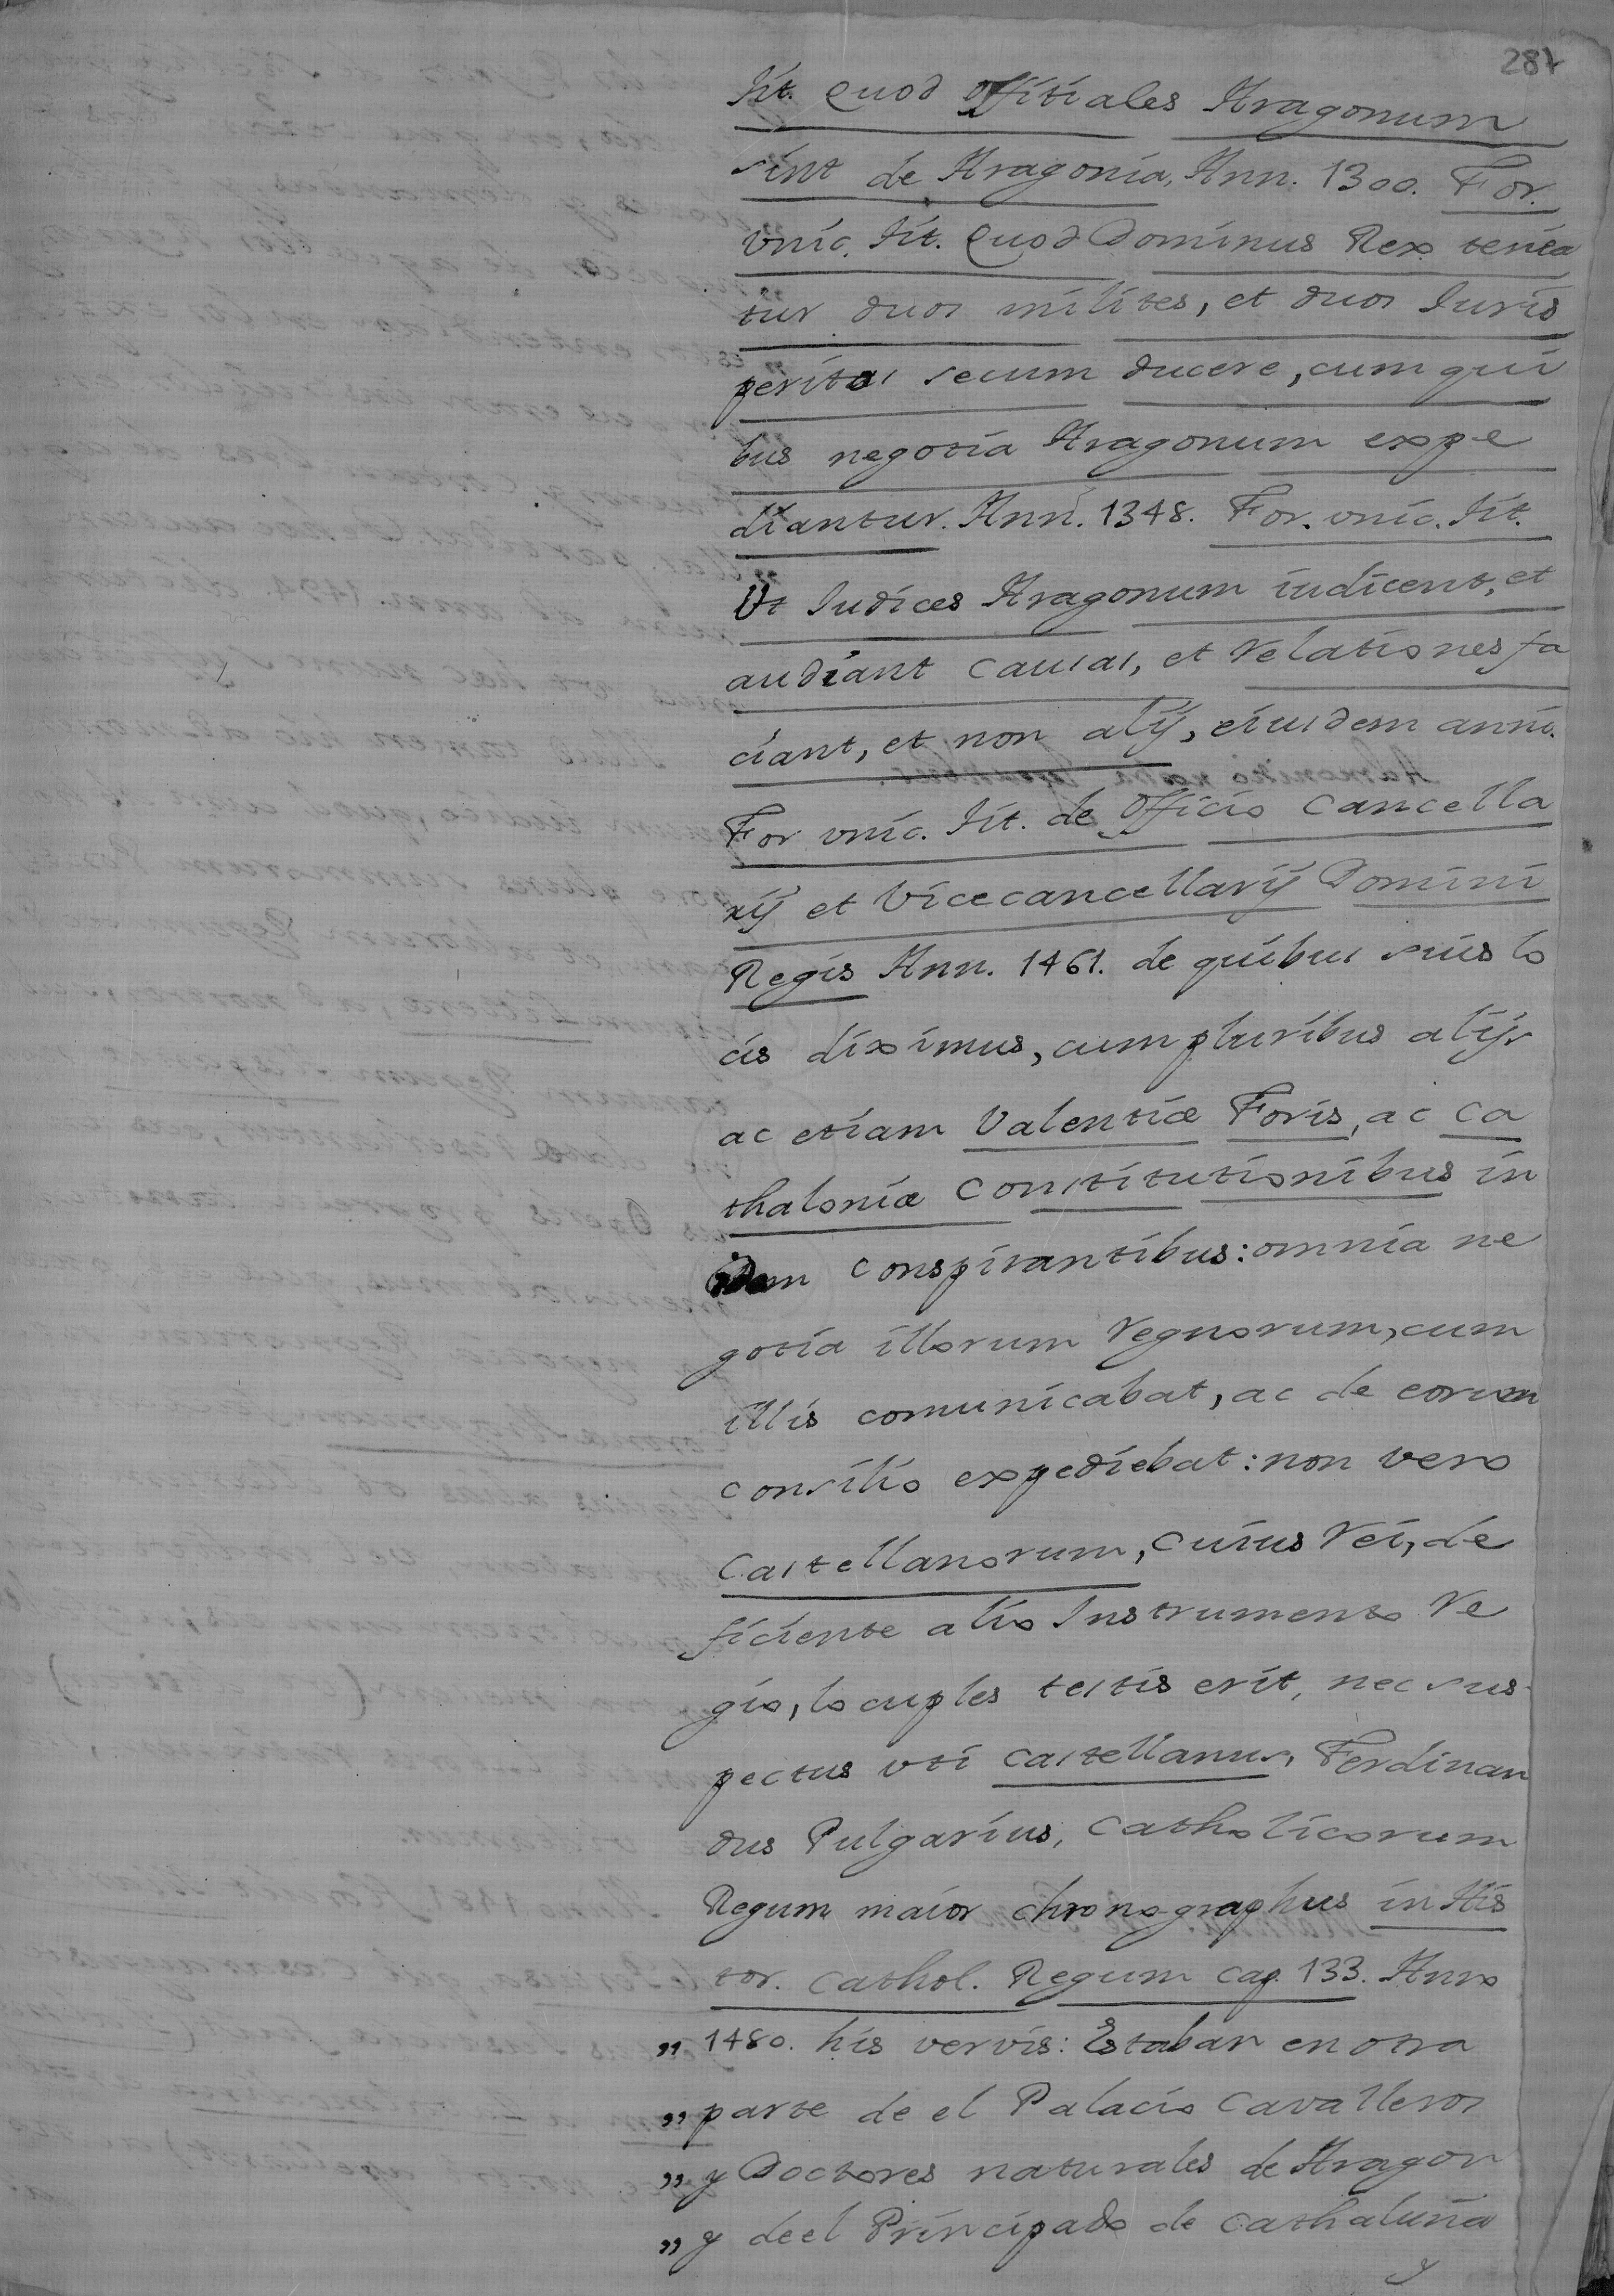 287
tit. Quod Offitiales Aragonum
sint de Aragonia, Ann. 1300. For.
vnic. tit. Quod Dominus Rex tenea
tur duos milites, et duos Iuris
peritos secum ducere, cum qui
bus negotia Aragonum expe
diantur. Ann. 1348. For. vnic. tit.
Vt Iudices Aragonum iudicent, et
audiant causas, et relationes fa
ciant, et non alij, eiusdem anni.
For vnic. tit. de Officio Cancella
rij et Vicecancellarij Domini
Regis Ann. 1461. de quibus suis lo
cis diximus, cum pluribus alijs
ac etiam Valentiæ Foris, ac Ca
thaloniæ Constitutionibus in
idem conspirantibus: omnia ne
gotia illorum regnorum, cum
illis comunicabat, ac de eorum
consilio expediebat: non vero
Castellanorum, cuius rei, de
ficiente alio Instrumento Re
gio, locuples testis erit, nec sus
pectus vti Castellanus, Ferdinan
dus Pulgarius, Catholicorum
Regum maior chronographus in His
tor. Cathol. Regum cap. 133. Anno
„ 1480. his vervis: Estaban en otra
„ parte de el Palacio Cavalleros
„ y Doctores naturales de Aragon
„ y deel Principado de Cathaluña
y